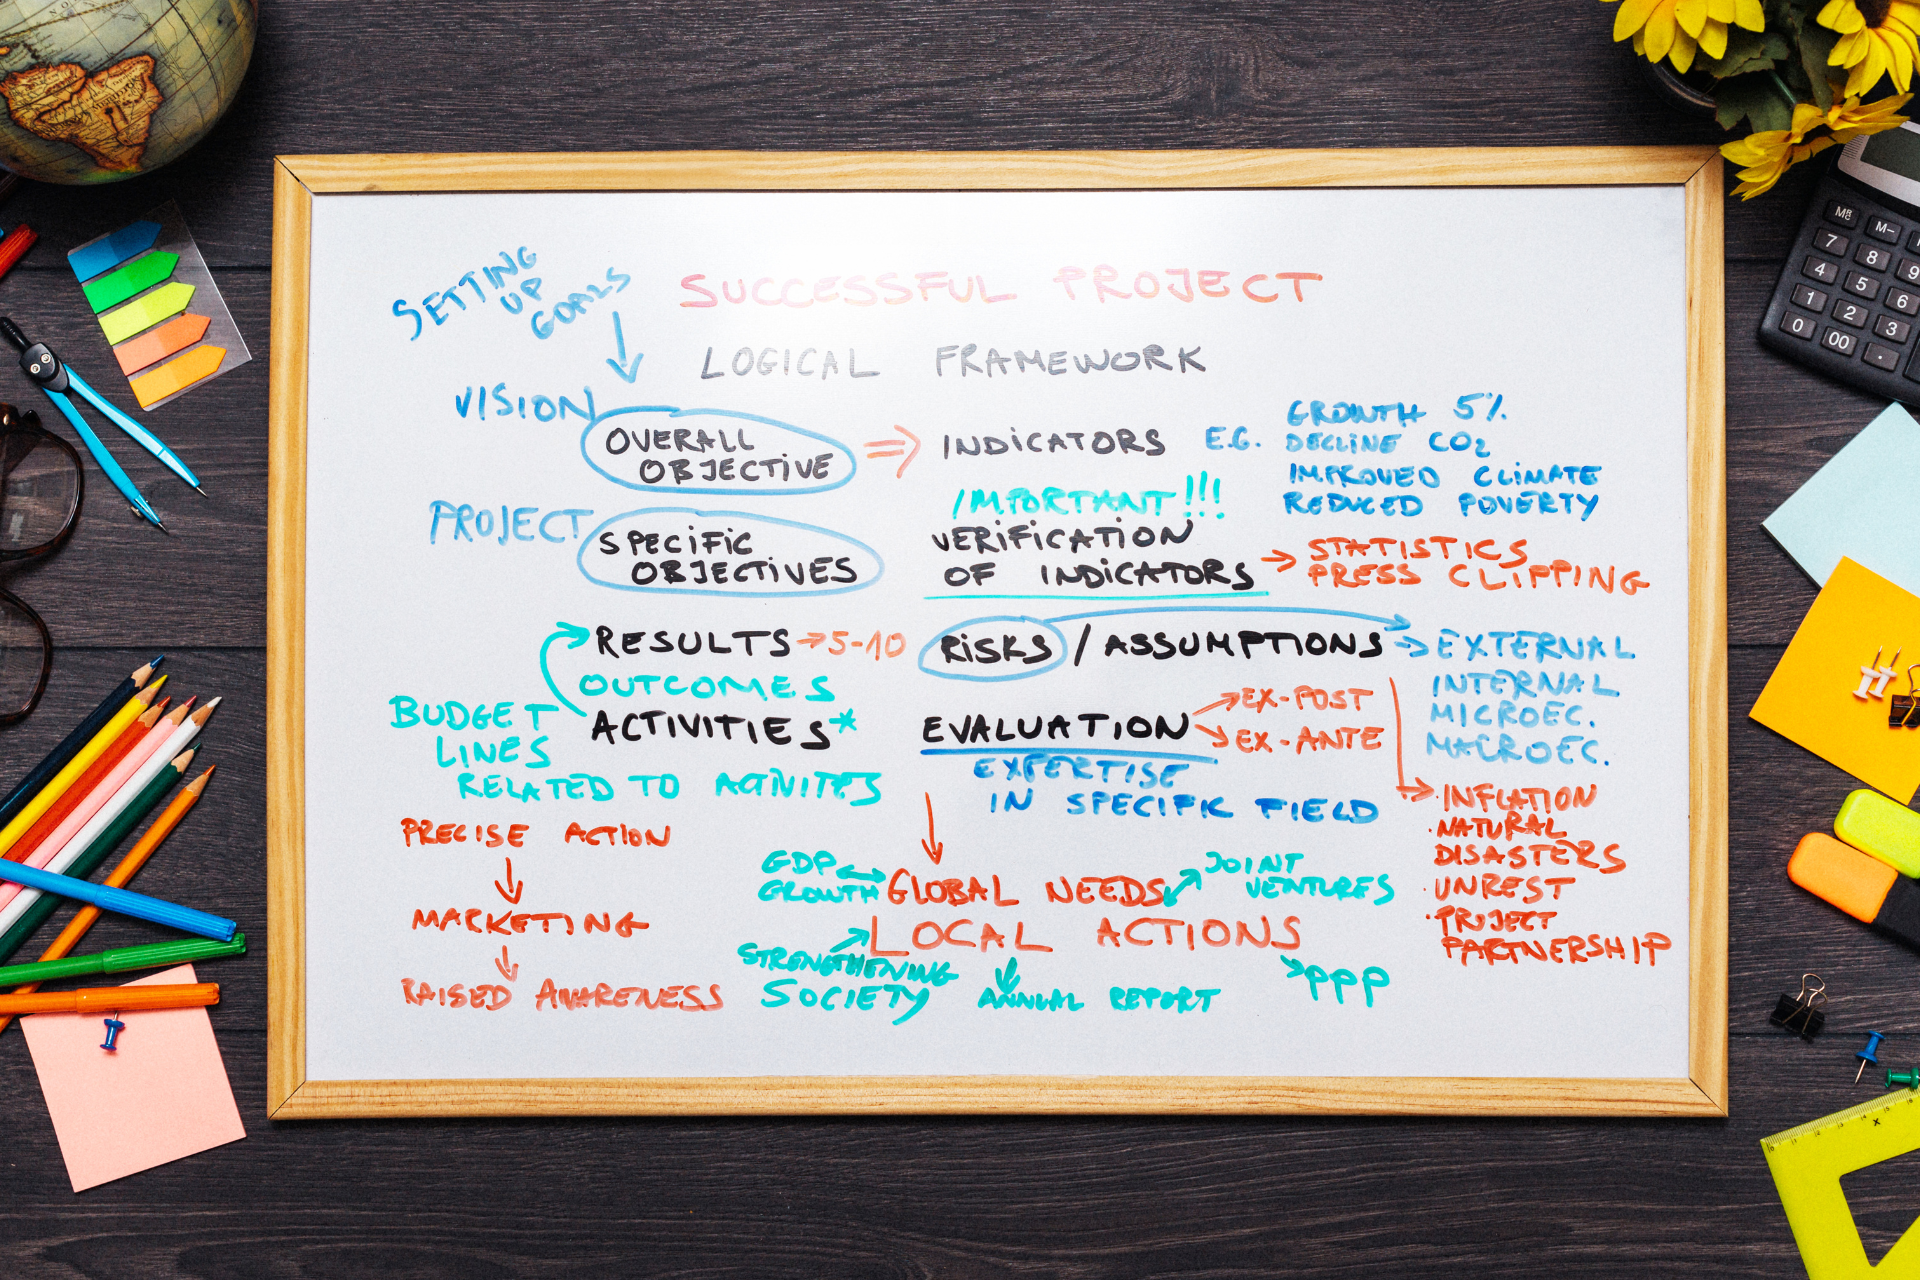 SETTING
UP
GOALS
SUCCESSFUL PROJECT
LOGICAL FRAMEWORK
VISION
OVERALL
OBJECTIVE
⇒ INDICATORS E.G.
GROWTH 5%
DECLINE CO2
IMPROVED CLIMATE
REDUCED POVERTY
PROJECT
SPECIFIC
OBJECTIVES
IMPORTANT!!!
VERIFICATION
OF INDICATORS →
STATISTICS
PRESS CLIPPING
RESULTS → 5-10
OUTCOMES
ACTIVITIES*
BUDGET
LINES
RELATED TO ACTIVITES
RISKS / ASSUMPTIONS →
EXTERNAL
INTERNAL
MICROEC.
MACROEC.
EVALUATION
EX-POST
EX-ANTE
EXPERTISE
IN SPECIFIK FIELD
· INFLATION
· NATURAL
DISASTERS
· UNREST
· PROJECT
PARTNERSHIP
PRECISE ACTION
MARKETING
RAISED AWARENESS
GDP
GROWTH
GLOBAL NEEDS
JOINT
VENTURES
LOCAL ACTIONS
STRENGTHENING
SOCIETY
ANNUAL REPORT
PPP
M-
7
8
9
4
5
6
1
2
3
0
00
.